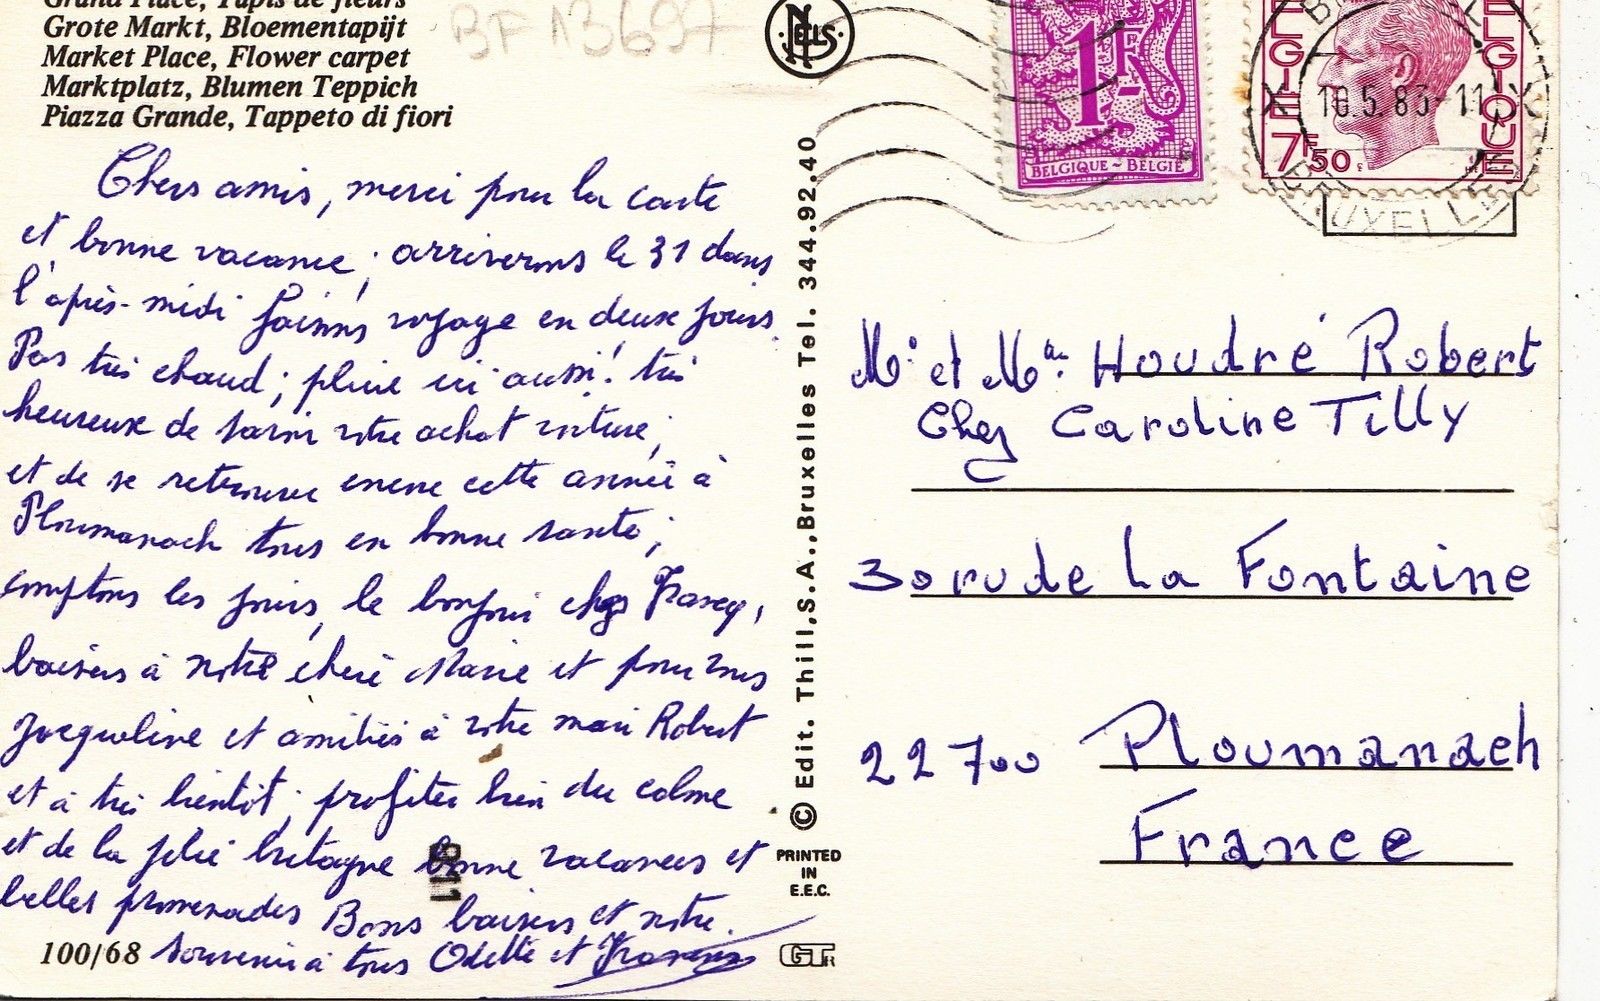 Grand Place, Tapis de fleurs
Grote Markt, Bloementapijt
Market Place, Flower carpet
Marktplatz, Blumen Teppich
Piazza Grande, Tappeto di fiori
BF 13697
NELS
1F
BELGIQUE - BELGIË
BELGIE BELGIQUE
7F50
18.5.83-11
BRUXELLES
Chers amis, merci pour la carte
et bonne vacance; arriverons le 31 dans
l'après-midi faisons voyage en deux jours.
Pas très chaud; pluie ici aussi! très
heureux de savoir votre achat voiture,
et de se retrouver encore cette année à
Ploumanach tous en bonne santé;
comptons les jours, le bonjour chez
baisers à notre chère Marie et pour vous
Jacqueline et amitiés à votre mari Robert
et à très bientôt; profiter bien du calme
et de la jolie bretagne bonne vacances et
belles promenades Bons baisers et notre
souvenir à tous Odette et
100/68
© Edit. Thill, S.A., Bruxelles Tel. 344.92.40
PRINTED
IN
E.E.C.
GTR
Mr et Me Houdré Robert
Chez Caroline Tilly
30 ru de la Fontaine
22700 Ploumanach
France